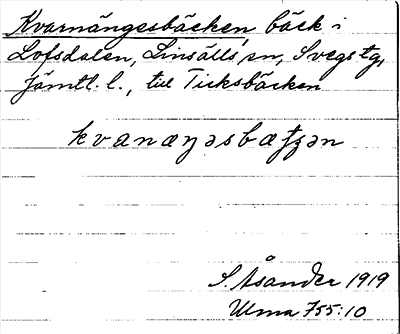 Kvarnängesbäcken, bäck i
Lofsdalen, Linsälls sn, Svegs tg,
Jämtl. l., till Ticksbäcken
kvanæŋəsbætʃən
S. Åsander 1919
Ulma 755:10